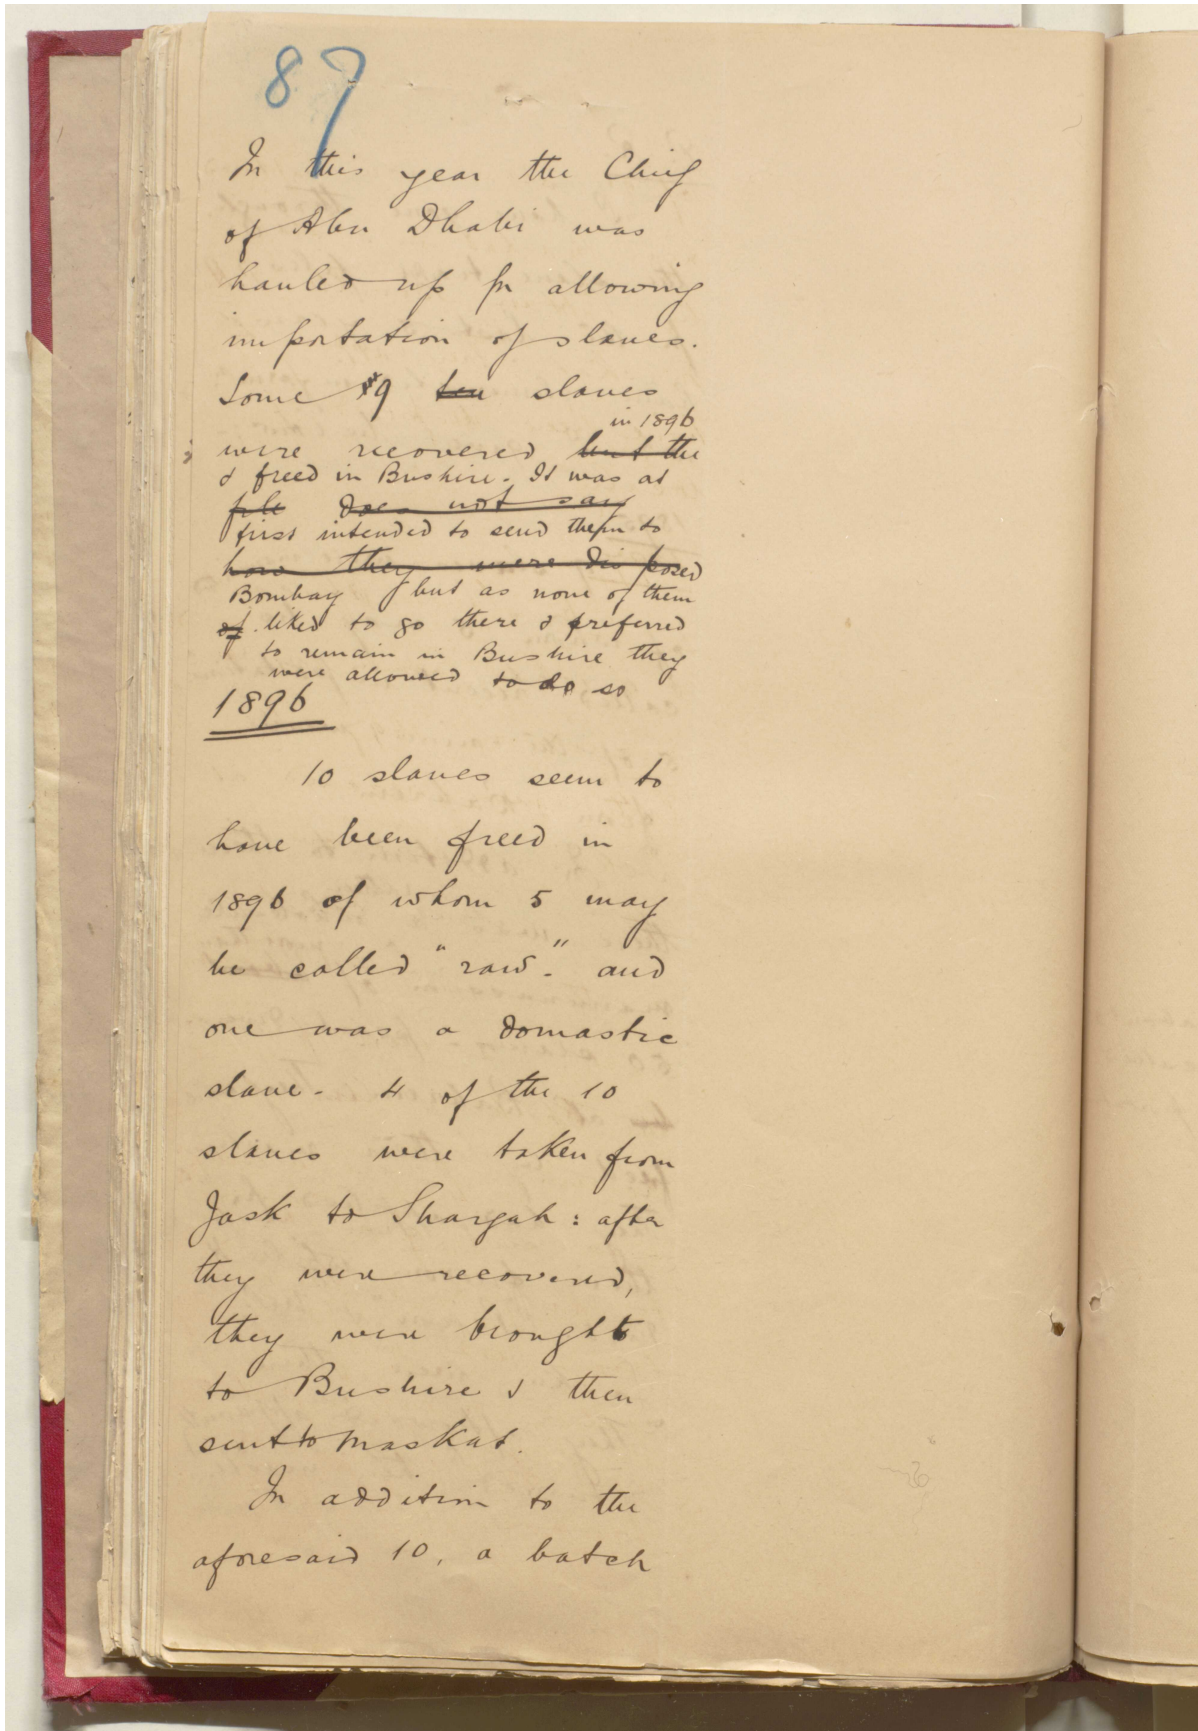 87
In this year the Chief
of Abu Dhabi was
hauled up for allowing
importation of slaves.
Some 9 ten slaves
in 1896
were recovered but the
& freed in Bushire. It was at
file does not say
first intended to send them to
how they were disposed
Bombay but as none of them
of. liked to go there & preferred
to remain in Bushire they
were allowed to do so
1896
10 slaves seem to
have been freed in
1896 of whom 5 may
be called "raw". and
one was a domastic
slave. 4 of the 10
slaves were taken from
Jask to Shargah: after
they were recovered,
they were brought
to Bushire & then
sent to Maskat.
In addition to the
aforesaid 10, a batch